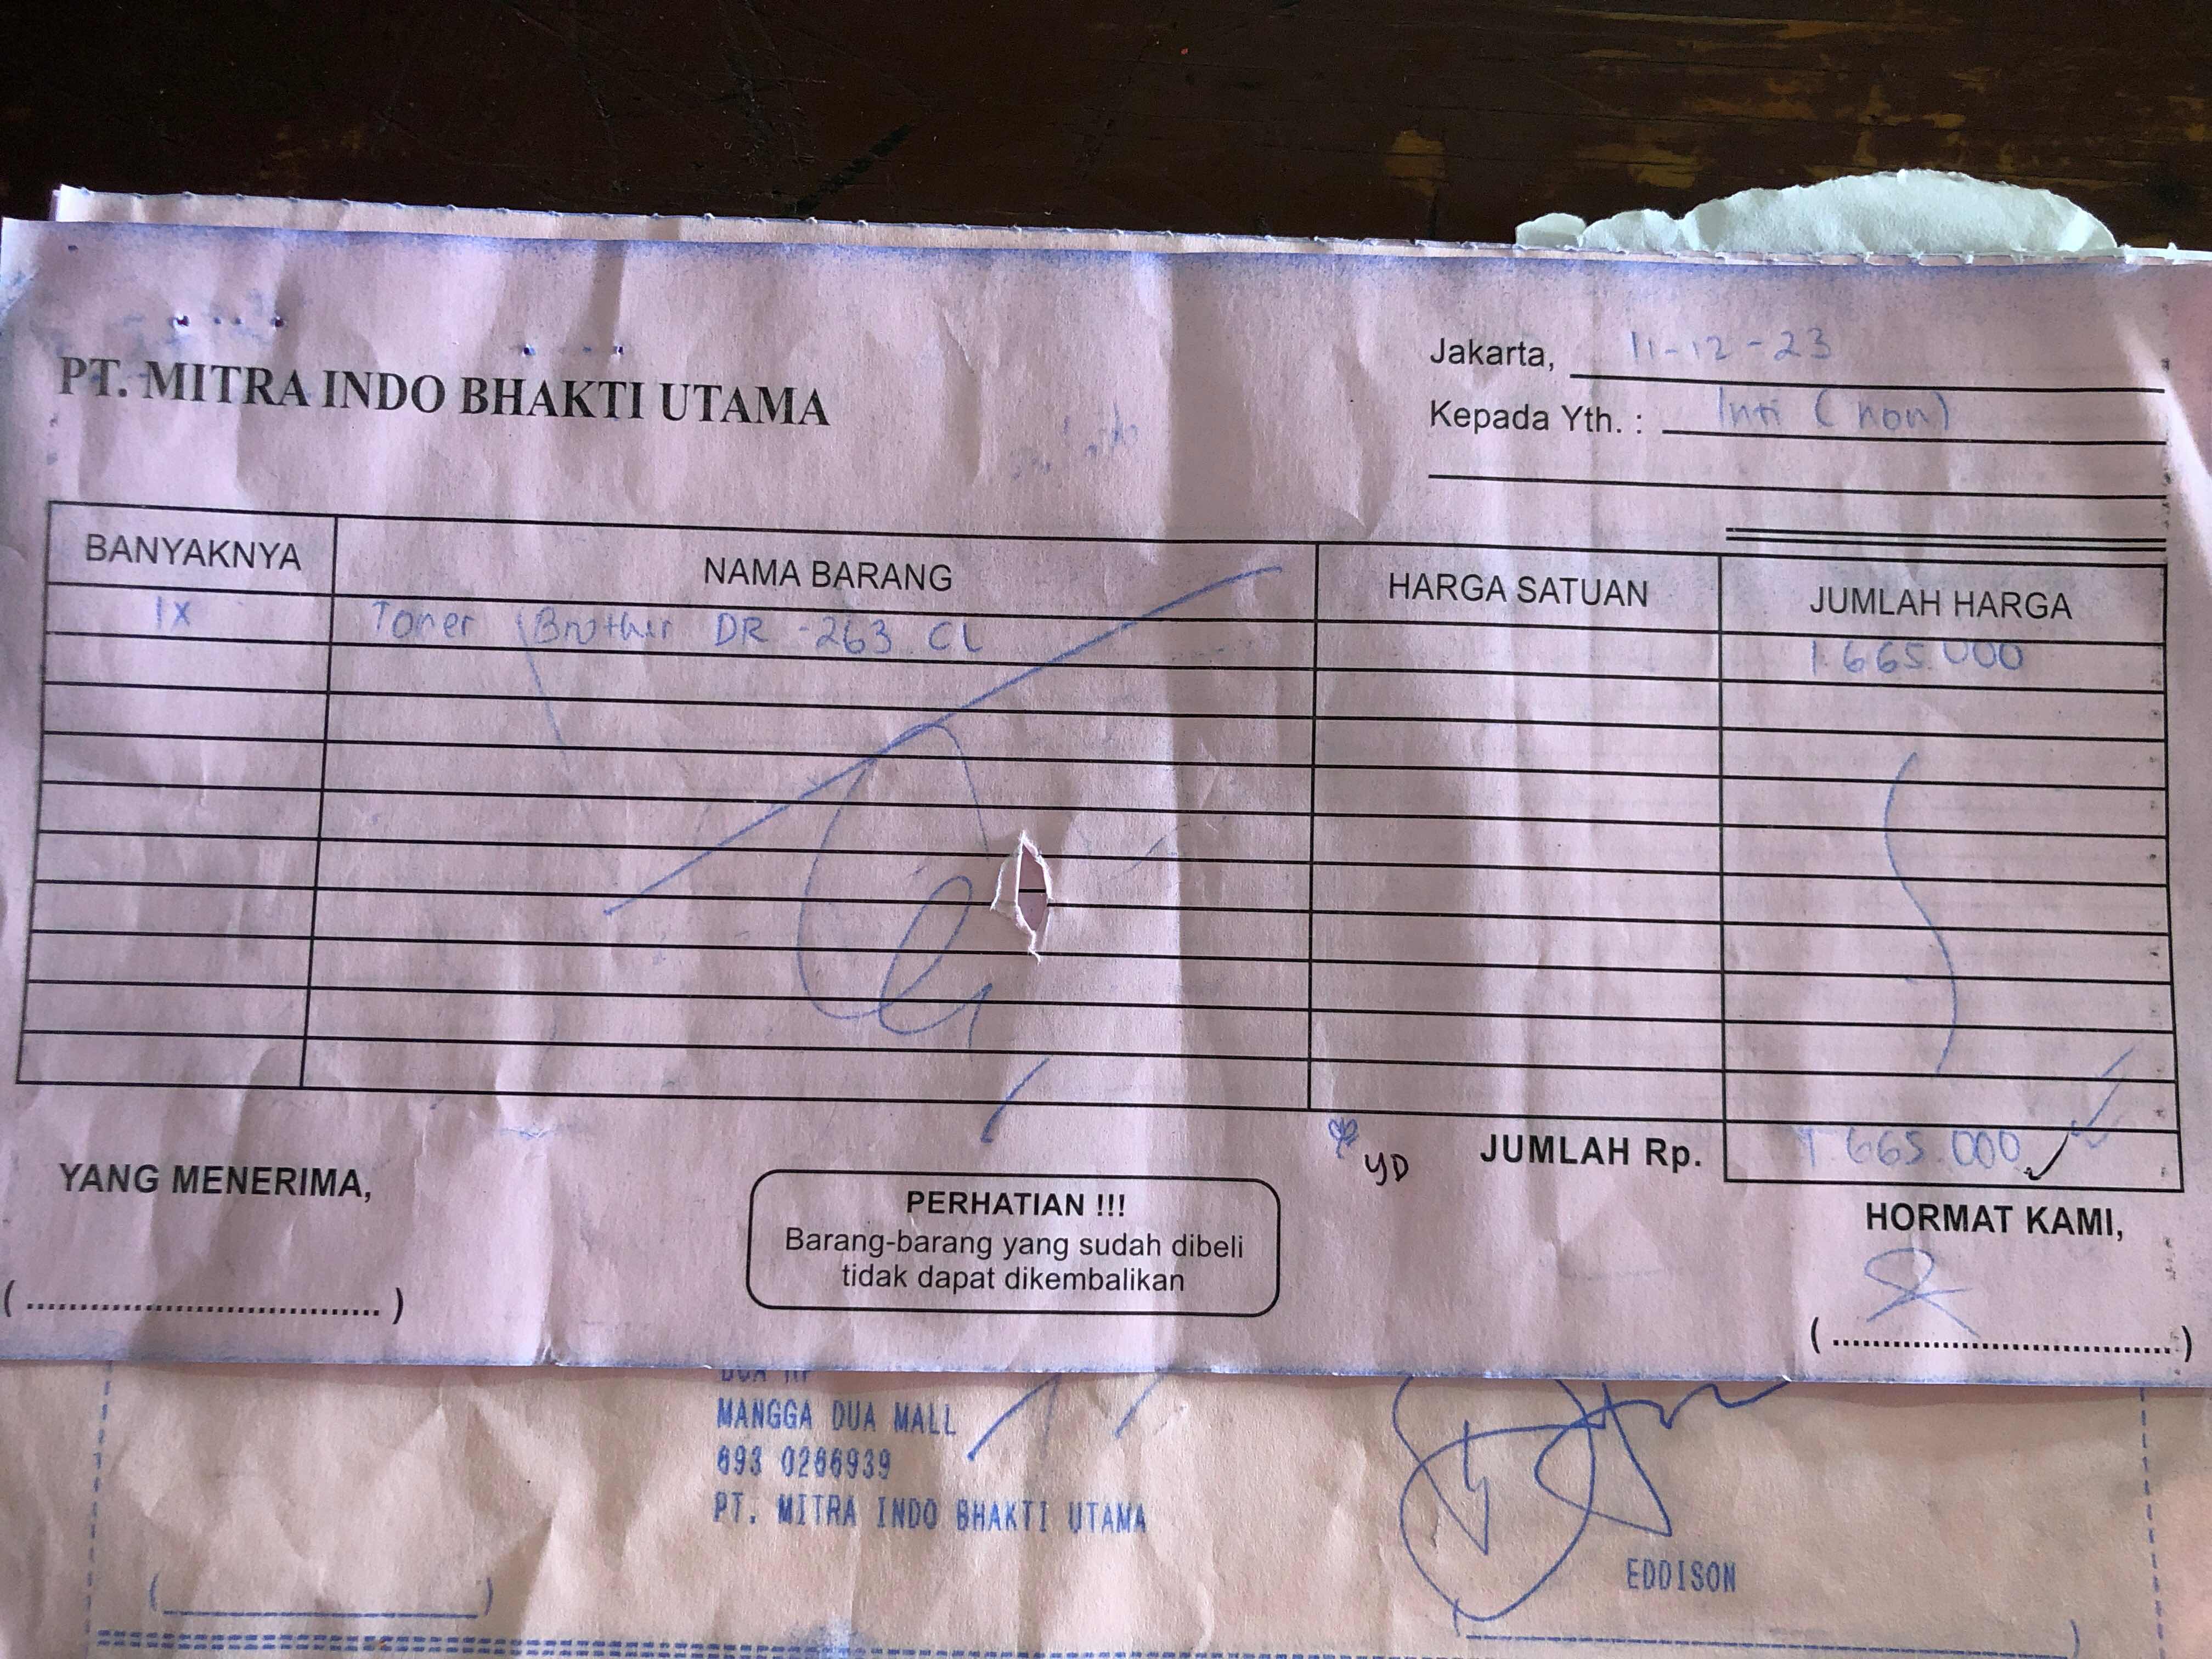 PT. MITRA INDO BHAKTI UTAMA
Jakarta, 11-12-23
Kepada Yth. : Inti (non)
BANYAKNYA NAMA BARANG HARGA SATUAN JUMLAH HARGA
1X Toner Brother DR-263 CL 1.665.000
YD JUMLAH Rp. 1.665.000
YANG MENERIMA,
PERHATIAN !!!
Barang-barang yang sudah dibeli
tidak dapat dikembalikan
HORMAT KAMI,
(....................................) (....................................)
MANGGA DUA MALL
693 0286939
PT. MITRA INDO BHAKTI UTAMA
EDDISON